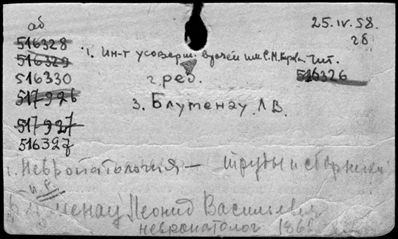 аб
25.IV.58.
516328
гб
516329
1. Ин-т усоверш. врачей им. С.М. Кирова чит.
516330
г. ред.
516326
517926
3. Блуменау Л В.
517927
516327
1. Невропатология — труды и сборники
Блуменау Леонид Васильевич
невропатолог 1862